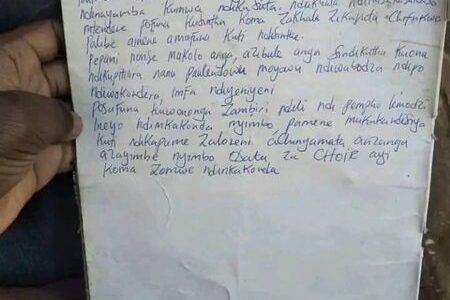 ndinayamba kumwa ndiku Suta, ndakhala
ntendere potuna kusintha koma Zakhala Zikupita
Palibe amene amafuna kuti ndisinthe.
Pepani nonse makolo anga, azibale anga Sindikutha kuona
ndikupitilira nanu paulendowu moyowu ndiwabodza ndipo
ndiwokondera, imfa ndiyeniyeni
Posafuna kuwononga Zambiri ndili ndi pempho limodzi
lneyo ndimakonda nyimbo, pamene mukukandisiya
Kuti ndikapume Zalozeni achinyamata anzanga
azayimbe nyimbo Osati Za CHOIR ayi
koma Zomwe ndinkakonda